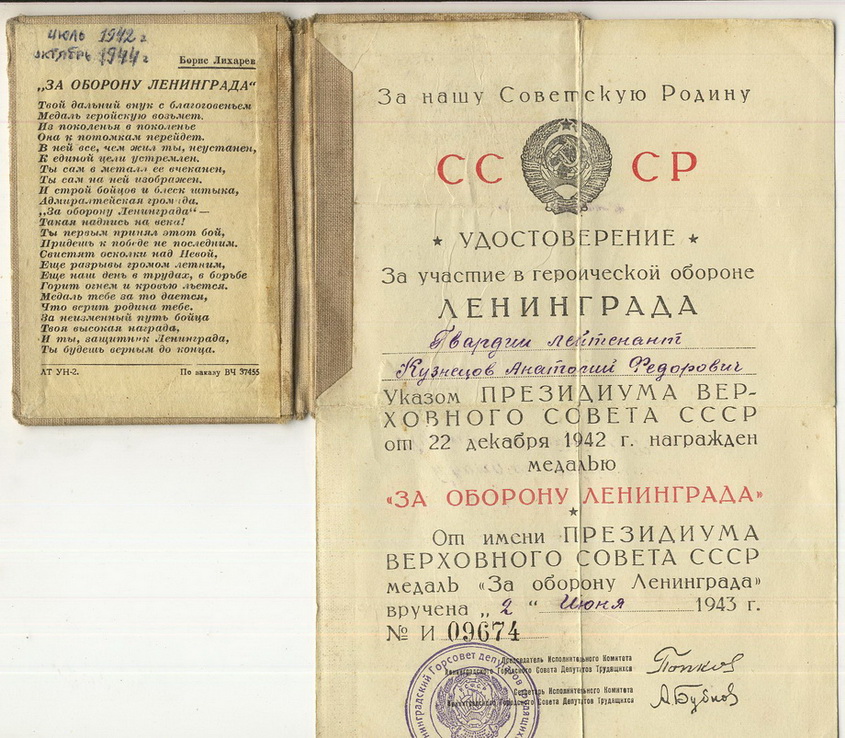 июль 1942 г
октябрь 1944 г
Борис Лихарев
„ЗА ОБОРОНУ ЛЕНИНГРАДА“
Твой дальний внук с благоговеньем
Медаль геройскую возьмет.
Из поколенья в поколенье
Она к потомкам перейдет.
В ней все, чем жил ты, неустанен,
К единой цели устремлен.
Ты сам в металл ее вчеканен,
Ты сам на ней изображен.
И строй бойцов и блеск штыка,
Адмиралтейская громада.
„За оборону Ленинграда“ —
Такая надпись на века!
Ты первым принял этот бой,
Придешь к победе не последним.
Свистят осколки над Невой,
Еще разрывы громом летним,
Еще наш день в трудах, в борьбе
Горит огнем и кровью льется.
Медаль тебе за то дается,
Что верит родина тебе.
За неизменный путь бойца
Твоя высокая награда,
И ты, защитник Ленинграда,
Ты будешь верным до конца.
ЛТ УН-2. По заказу ВЧ 37455
За нашу Советскую Родину
СС СР
★ УДОСТОВЕРЕНИЕ ★
За участие в героической обороне
ЛЕНИНГРАДА
Гвардии лейтенант
Кузнецов Анатолий Федорович
Указом ПРЕЗИДИУМА ВЕР-
ХОВНОГО СОВЕТА СССР
от 22 декабря 1942 г. награжден
медалью
«ЗА ОБОРОНУ ЛЕНИНГРАДА»
★
От имени ПРЕЗИДИУМА
ВЕРХОВНОГО СОВЕТА СССР
медаль «За оборону Ленинграда»
вручена „2“ Июня 1943 г.
№ И 09674
Председатель Исполнительного Комитета
Ленинградского Городского Совета Депутатов Трудящихся
Попков
Секретарь Исполнительного Комитета
Ленинградского Городского Совета Депутатов Трудящихся
А.Бубнов
Ленинградский Горсовет депутатов трудящихся